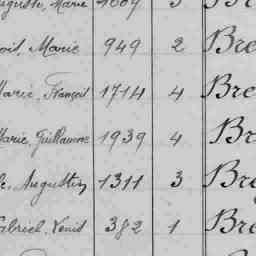 Marie 1609 3
Marie 949 2 Bre
Marie, François 1714 4 Bre
Marie, Guillaume 1939 4 Br
Augustin 1311 3 Bre
Gabriel, Denis 382 1 Bre